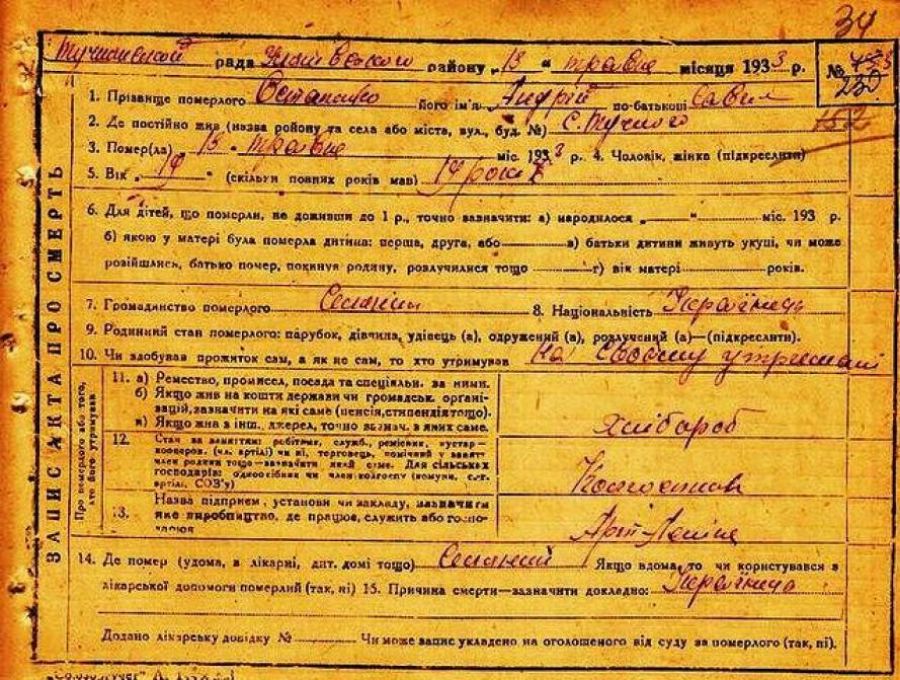 34
рада району „13“ травня місяця 1933 р. №
230
1. Прізвище померлого Остапенко його ім'я Андрій по-батькові Савич
152
2. Де постійно жив (назва району та села або міста, вул., буд. №) с.
3. Помер(ла) 13 травня міс. 1933 р. 4. Чоловік, жінка (підкреслити)
5. Вік „19“ (скільки повних років мав) 19 років
6. Для дітей, що померли, не доживши до 1 р., точно зазначити: а) народилося „ “ міс. 193 р.
б) якою у матері була померла дитина: перша, друга, або в) батьки дитини живуть укупі, чи може
розійшлись, батько помер, покинув родину, розлучилися тощо г) вік матері років.
7. Громадянство померлого Селянин 8. Національність Українець
9. Родинний стан померлого: парубок, дівчина, удівець (а), одружений (а), розлучений (а)—(підкреслити).
10. Чи здобував прожиток сам, а як не сам, то хто утримував на своєму утриманні
ЗАПИС АКТА ПРО СМЕРТЬ
Про померлого або того, хто його утримував
11. а) Ремество, промисел, посада та спеціяльн. за ними.
б) Якщо жив на кошти держави чи громадськ. органі-
зацій, зазначити на які саме (пенсія, стипендія тощо).
в) Якщо жив з інш. джерел, точно зазнач. в яких саме.
Хлібороб
12. Стан за заняттям: робітник, служб., ремісник, кустар—
кооперов. (чл. артілі) чи ні, торговець, помічний у занятт.
член родини тощо—зазначити який саме. Для сільських
господарів: одноосібник чи член колгоспу (комуни, с.-г.
артілі, СОЗ'у)
Колгоспник
13. Назва підприєм., установи чи закладу, зазначити
яке виробництво, де працює, служить або госпо-
Арт Леніна
14. Де помер (удома, в лікарні, дит. домі тощо) Селянин Якщо вдома, то чи користувався з
лікарської допомоги померлий (так, ні) 15. Причина смерти—зазначити докладно: Українець
Додано лікарську довідку № Чи може запис укладено на оголошеного від суду за померлого (так, ні).